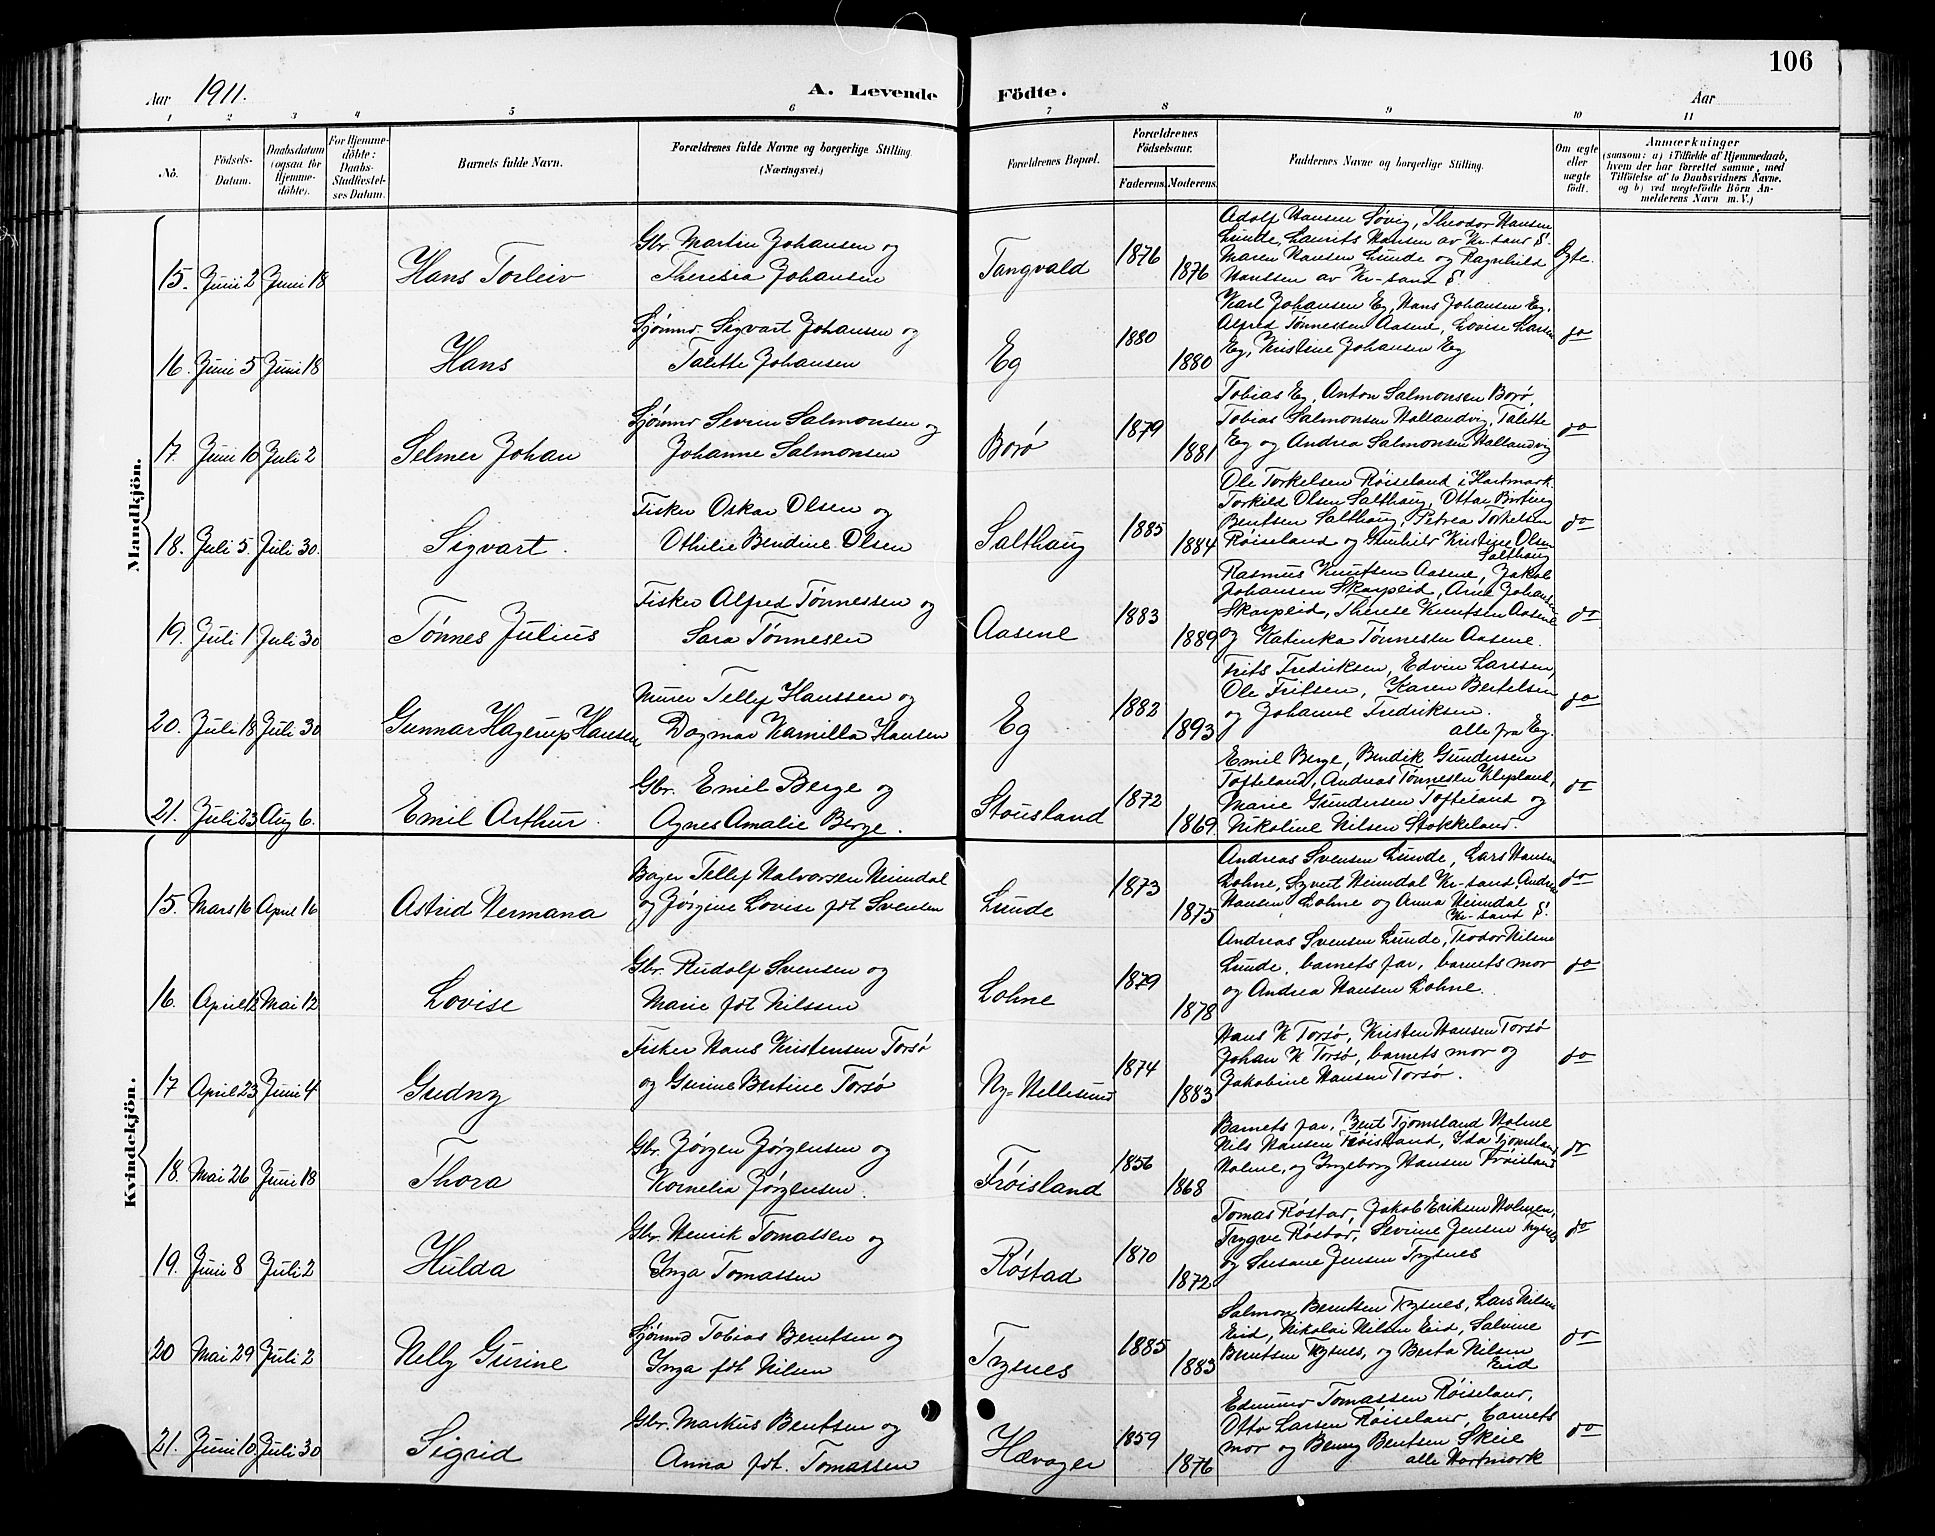 106
Aar 1911.
A. Levende Födte.
Aar
1 2 3 4 5 6 7 8 9 10 11
No.
Födsels-Datum.
Daabsdatum (ogsaa for Hjemmedöbte).
For Hjemmedöbte: Daabs-Stadfæstelses Datum.
Barnets fulde Navn.
Forældrenes fulde Navne og borgerlige Stilling (Næringsvei.)
Forældrenes Bopæl.
Forældrenes Födselsaar.
Faderens. Moderens.
Faddernes Navne og borgerlige Stilling.
Om ægte eller uægte födt.
Anmærkninger
(saasom: a) i Tilfælde af Hjemmedaab, hvem der har forrettet samme, med Tilföielse af to Daabsvidners Navne, og b) ved uegtefödte Börn Anmelderens Navn m. V.)
Mandkjön.
15. Juni 2 Juni 18 Hans Torleiv
Gbr. Martin Johansen og
Theresia Johansen
Tangvald 1876 1876
Adolf Hansen Søvig, Theodor Hansen
Lunde, Laurits Hansen av Kr-sand S.
Maren Hansen Lunde og Ragnhild
Hanssen av Kr-sand S.
Egte.
16. Juni 5 Juni 18 Hans
Sjømnd Sigvart Johansen og
Talette Johansen
Eg 1880 1880
Karl Johansen Eg, Hans Johansen Eg,
Alfred Tønnessen Aasene, Lovise Larsen
Eg, Kristine Johansen Eg
do
17. Juni 16 Juli 2 Selmer Johan
Sjømnd Severin Salmonsen og
Johanne Salmonsen
Borø 1879 1881
Tobias Eg, Anton Salmonsen Borø,
Tobias Salmonsen Hallandvig, Talette
Eg og Andrea Salmonsen Hallandvig
do
18. Juli 5. Juli 30. Sigvart.
Fisker Oskar Olsen og
Othilie Bendine Olsen
Salthaug 1885 1884
Ole Torkelsen Røiseland i Hartmark
Torkild Olsen Salthaug, Ottar Birting
Bentsen Salthaug, Petrea Torkelsen
Røiseland og Gunhild Kristine Olsen
Salthaug
do
19. Juli 1. Juli 30 Tønnes Julius
Fisker Alfred Tønnessen og
Sara Tønnesen
Aasene 1883 1889
Rasmus Knutsen Aasene, Jakob
Johansen Skarpeid, Arne Johansen
Skarpeid, Therese Knutsen Aasene
og Katinka Tønnesen Aasene.
do
20. Juli 18 Juli 30 Gunnar Hagerup Hansen
Murer Tellef Hanssen og
Dagmar Kamilla Hansen
Eg 1882 1893
Frits Fredriksen, Edvin Larssen,
Ole Fritsen, Karen Bertelsen
og Johanne Fredriksen.
alle fra Eg.
do
21. Juli 23 Aug 6. Emil Arthur.
Gbr. Emil Berge og
Agnes Amalie Berge.
Stousland 1872 1869
Emil Berge, Bendik Gundersen
Tofteland, Andreas Tønnesen Klepland,
Marie Gundersen Tofteland og
Nikoline Nilsen Stokkeland.
do
Kvindekjön.
15. Mars 16 April 16 Astrid Hermana
Bager Tellef Halvorsen Heimdal
og Jørgine Lovise fdt Svensen
Lunde 1873 1875
Andreas Svensen Lunde, Lars Hansen
Lohne, Syvert Heimdal Kr-sand, Andrea
Hansen Lohne og Anna Heimdal
Kr-sand S.
do
16. April 12 Mai 12 Lovise
Gbr. Rudolf Svensen og
Marie fdt Nilssen
Lohne 1879 1878
Andreas Svensen Lunde, Teodor Nilsen
Lunde, barnets far, barnets mor
og Andrea Hansen Lohne.
do
17 April 23 Juni 4 Gudny
Fisker Hans Kristensen Torsø
og Gurine Bertine Torsø
Ny-Hellesund 1874 1883
Hans K Torsø, Kristen Hansen Torsø
Johan K Torsø, barnets mor og
Jakobine Hansen Torsø.
do
18. Mai 26 Juni 18 Thora
Gbr. Jørgen Jørgensen og
Kornelia Jørgensen.
Frøisland 1856 1868
Barnets far, Bent Tjomsland Holme
Nils Hansen Frøisland, Ida Tjomsland
Holme, og Ingeborg Hansen Frøisland
do
19. Juni 8 Juli 2 Hulda
Gbr. Henrik Tomassen og
Inga Tomassen
Røstad 1870 1872
Tomas Røstad, Jakob Eriksen Holmen,
Trygve Røstad, Severine Jensen Trysnes
og Susane Jensen Trysnes
do
20 Mai 29 Juli 2 Nelly Gurine
Sjømnd Tobias Berntsen og
Inga fdt Nilsen
Trysnes 1885 1883
Salmon Berntsen Trysnes, Lars Nilsen
Eid, Nikolai Nilsen Eid, Salvine
Berntsen Trysnes, og Berta Nilsen
Eid
do
21. Juni 10 Juli 30 Sigrid
Gbr. Markus Bentsen og
Anna fdt. Tomassen
Hævager 1859 1876
Edmund Tomassen Røiseland,
Otto Larsen Røiseland, barnets
mor og Benny Bentsen Skeie
alle Hartmark
do